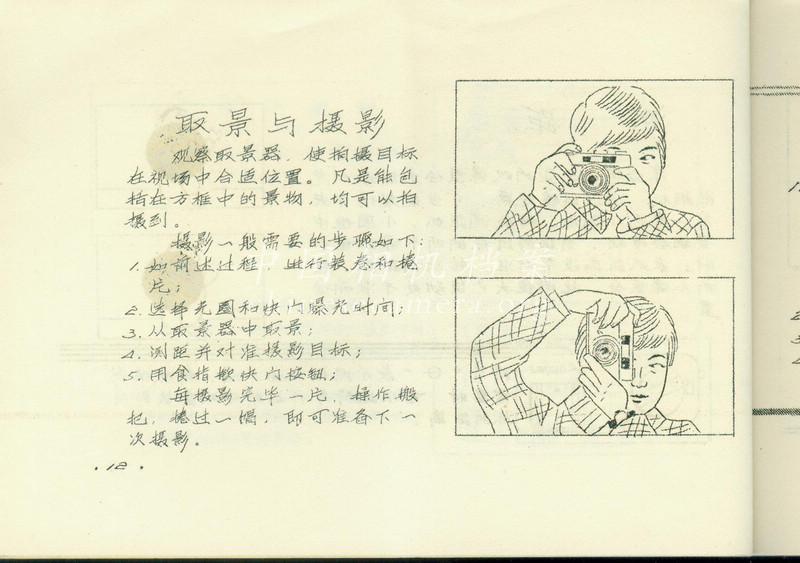 取景与摄影
观察取景器，使拍摄目标
在视场中合适位置。凡是能包
括在方框中的景物，均可以拍
摄到。
摄影一般需要的步骤如下：
1. 如前述过程，进行装卷和捲
片；
2. 选择光圈和快门曝光时间；
3. 从取景器中取景；
4. 测距并对准摄影目标；
5. 用食指揿快门按钮；
每摄影完毕一片，操作搬
把，捲过一幅，即可准备下一
次摄影。
·12·